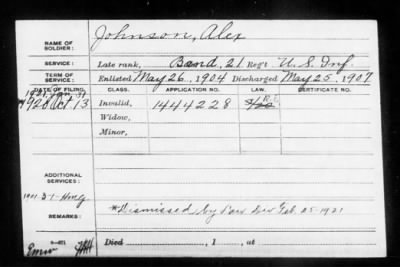 Johnson, Alex
NAME OF SOLDIER:
SERVICE: Late rank, Band, 21 Reg't U. S. Inf.
TERM OF SERVICE: Enlisted May 26, 1904 Discharged May 25, 1907
DATE OF FILING. CLASS. APPLICATION NO. LAW. CERTIFICATE NO.
1928 Oct. 13 Invalid, 1444228
Widow,
Minor,
ADDITIONAL SERVICES:
REMARKS: *Dismissed by Feb. 25-1921
Died , 1 , at